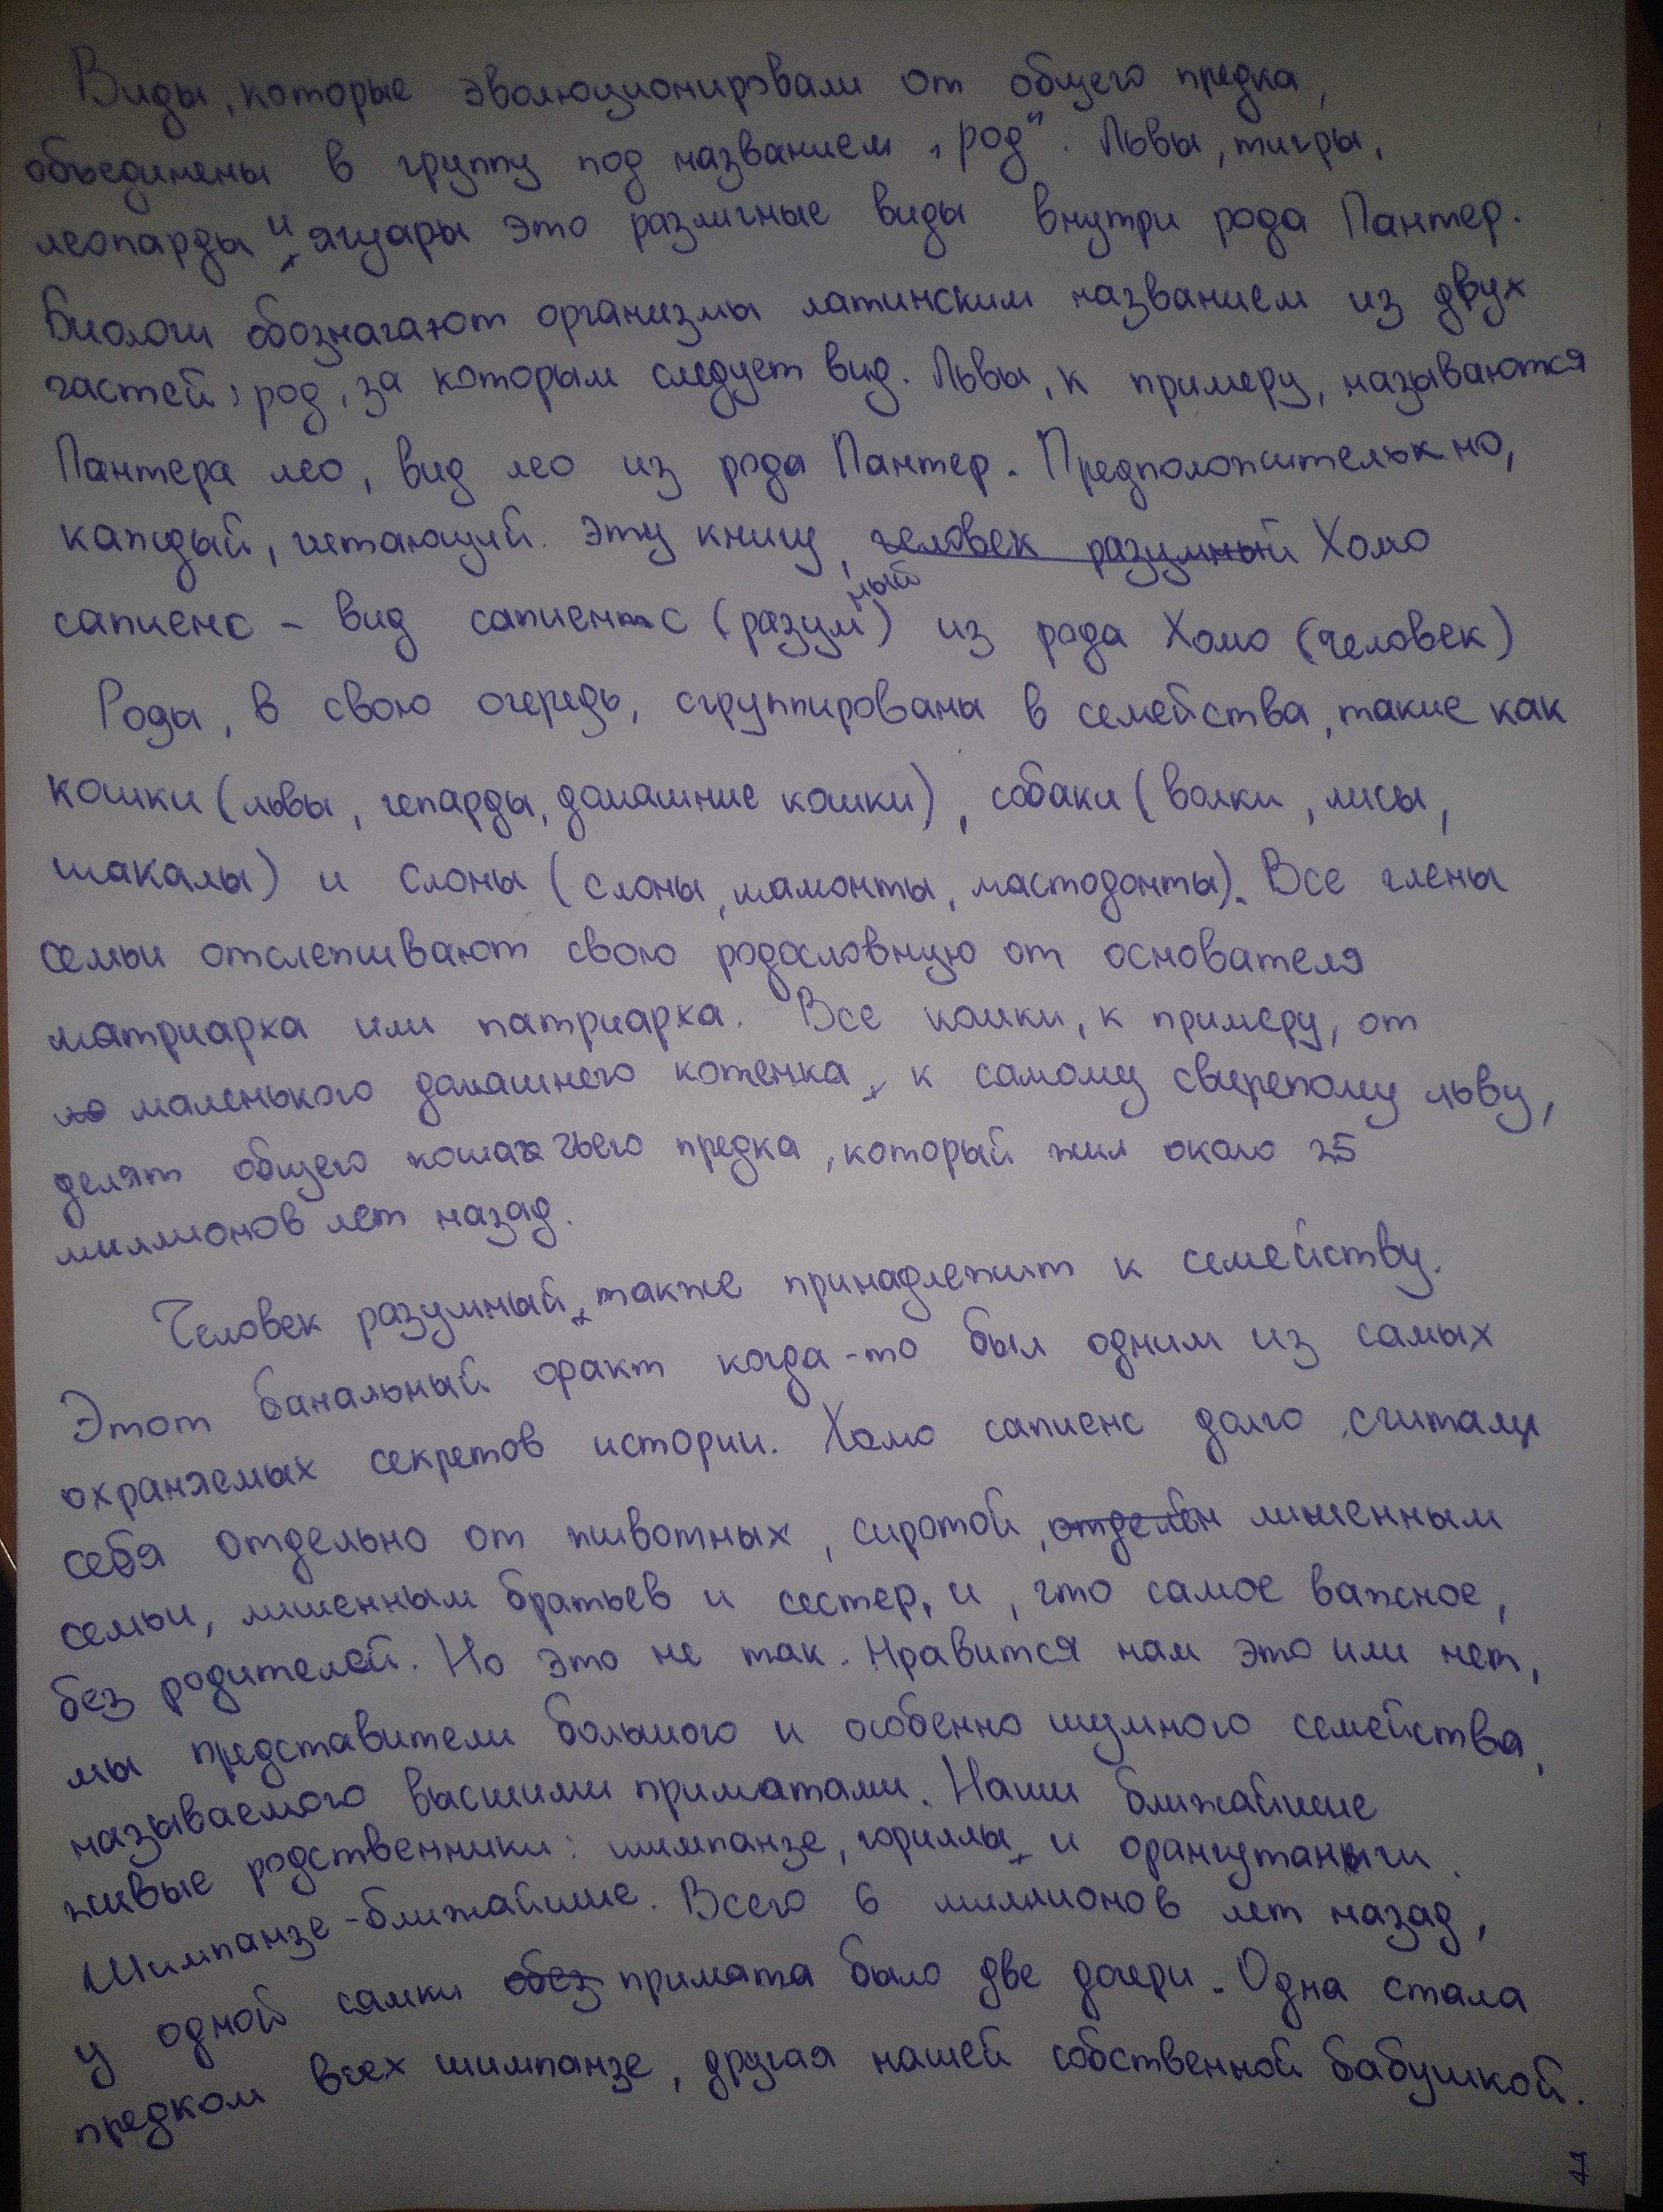 Виды, которые эволюционировали от общего предка,
объединены в группу под названием „род". Львы, тигры,
леопарды и ягуары это различные виды внутри рода Пантер.
Биологи обозначают организмы латинским названием из двух
частей, род, за которым следует вид. Львы, к примеру, называются
Пантера лео, вид лео из рода Пантер. Предположительно,
каждый, читающий эту книгу, человек разумный Хомо
сапиенс - вид сапиенс (разумный) из рода Хомо (человек)
Роды, в свою очередь, сгруппированы в семейства, такие как
кошки (львы, гепарды, домашние кошки), собаки (волки, лисы,
шакалы) и слоны (слоны, мамонты, мастодонты). Все члены
семьи отслеживают свою родословную от основателя
матриарха или патриарха. Все кошки, к примеру, от
маленького домашнего котенка, к самому свирепому льву,
делят общего кошачьего предка, который жил около 25
миллионов лет назад.
Человек разумный также принадлежит к семейству.
Этот банальный факт когда-то был одним из самых
охраняемых секретов истории. Хомо сапиенс долго считали
себя отдельно от животных, сиротой, отдельн лишенным
семьи, лишенным братьев и сестер, и, что самое важное,
без родителей. Но это не так. Нравится нам это или нет,
мы представители большого и особенно шумного семейства,
называемого высшими приматами. Наши ближайшие
живые родственники: шимпанзе, гориллы и орангутанги.
Шимпанзе - ближайшие. Всего 6 миллионов лет назад,
у одной самки обез примата было две дочери. Одна стала
предком всех шимпанзе, другая нашей собственной бабушкой.
7